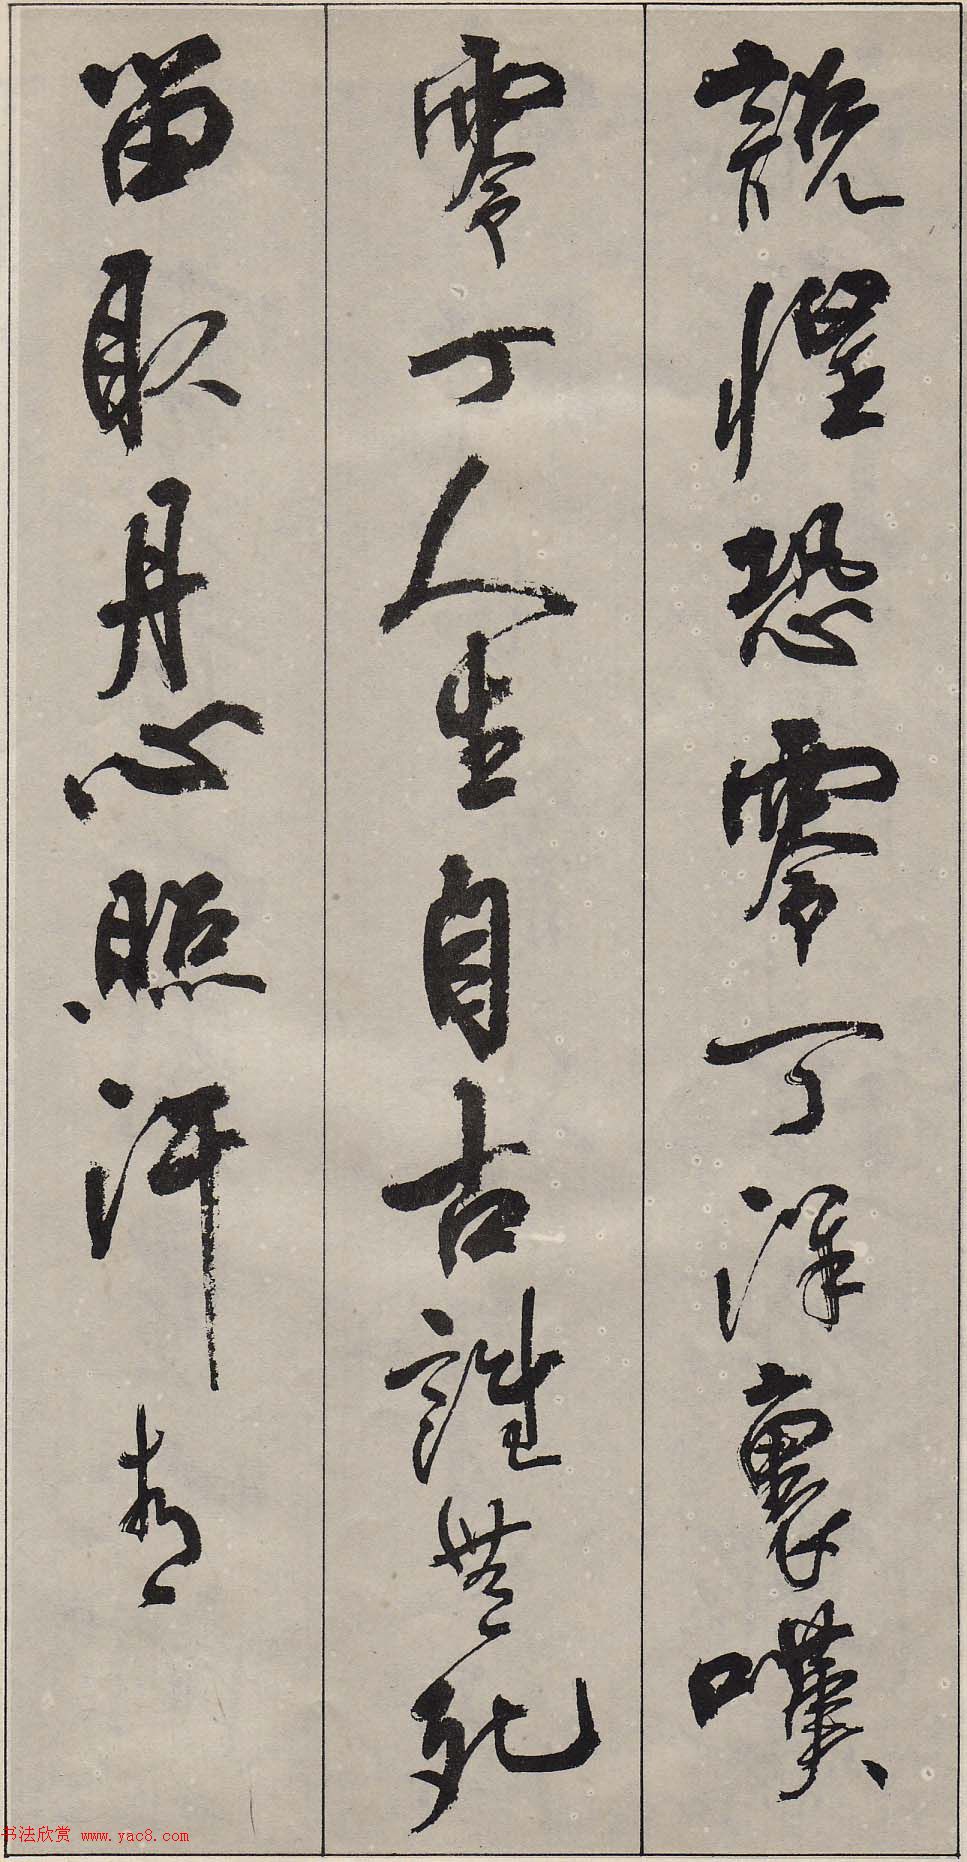 說惶恐零丁洋裏嘆
零丁人生自古誰無死
留取丹心照汗青
书法欣赏 www.yac8.com